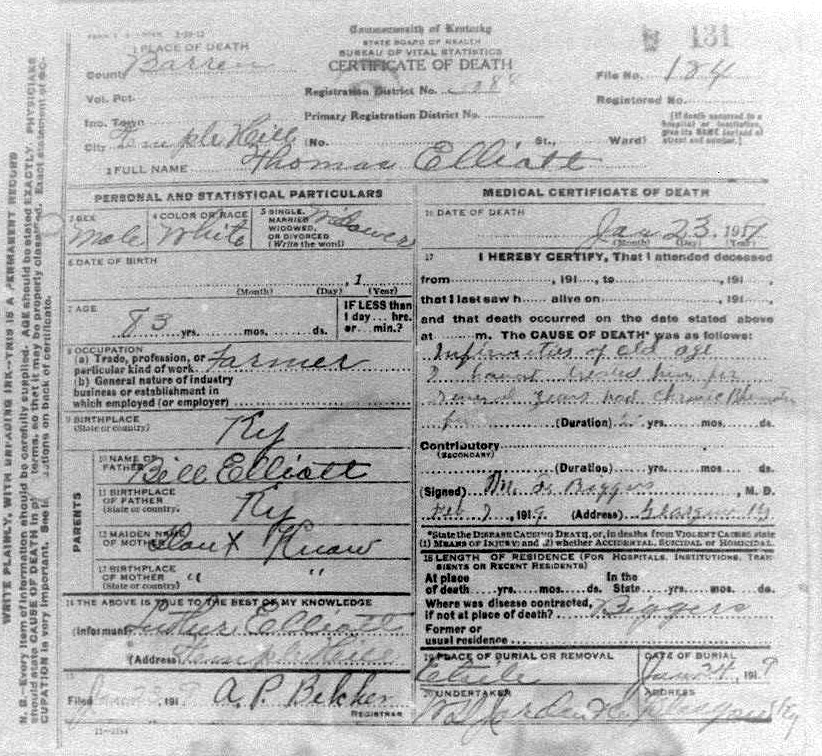 Commonwealth of Kentucky
STATE BOARD OF HEALTH
BUREAU OF VITAL STATISTICS
CERTIFICATE OF DEATH
131
1 PLACE OF DEATH
County Barren
Vol. Pct.
Inc. Town
City Temple Hill
Registration District No.
Primary Registration District No.
(No. St., Ward)
File No. 184
Registered No.
(If death occurred in a hospital or institution, give its NAME instead of street and number.)
2 FULL NAME Thomas Elliott
PERSONAL AND STATISTICAL PARTICULARS
3 SEX Male
4 COLOR OR RACE White
5 SINGLE, MARRIED WIDOWED, OR DIVORCED (Write the word) Widower
6 DATE OF BIRTH
, 1
(Month) (Day) (Year)
7 AGE
83 yrs. mos. ds.
IF LESS than 1 day... hrs. or... min.?
8 OCCUPATION
(a) Trade, profession, or particular kind of work Farmer
(b) General nature of industry
business or establishment in
which employed (or employer)
9 BIRTHPLACE
(State or country) Ky
PARENTS
10 NAME OF FATHER Bill Elliott
11 BIRTHPLACE OF FATHER
(State or country. Ky
12 MAIDEN NAME OF MOTHER Dont Know
13 BIRTHPLACE OF MOTHER
(State or country) " "
14 THE ABOVE IS TRUE TO THE BEST OF MY KNOWLEDGE
(Informant Elliott
(Address) Temple Hill
15
Filed Jan 23, 191 A. P. Belcher
REGISTRAR
MEDICAL CERTIFICATE OF DEATH
16 DATE OF DEATH
Jan 23, 191
(Month) (Day) (Year)
17 I HEREBY CERTIFY, That I attended deceased
from , 191 , to , 191 ,
that I last saw h alive on , 191 ,
and that death occurred on the date stated above
at m. The CAUSE OF DEATH* was as follows:
Infirmities of old age
I havnt treated him for
several years had chronic
(Duration) yrs. mos. ds.
Contributory
(SECONDARY)
(Duration) yrs. mos. ds.
(Signed) Biggers, M. D.
Feb 7, 1919 (Address) Glasgow Ky
*State the DISEASE CAUSING DEATH, or, in deaths from VIOLENT CAUSES, state
(1) MEANS OF INJURY; and (2) whether ACCIDENTAL, SUICIDAL or HOMICIDAL.
18 LENGTH OF RESIDENCE (FOR HOSPITALS, INSTITUTIONS, TRANSIENTS OR RECENT RESIDENTS)
At place of death yrs. mos. ds. In the State yrs. mos. ds.
Where was disease contracted,
if not at place of death? Biggers
Former or
usual residence
19 PLACE OF BURIAL OR REMOVAL
DATE OF BURIAL
Jan 24, 191
20 UNDERTAKER
ADDRESS
WRITE PLAINLY, WITH UNFADING INK--THIS IS A PERMANENT RECORD
N. B.--Every item of information should be carefully supplied. AGE should be stated EXACTLY. PHYSICIANS
should state CAUSE OF DEATH in terms, so that it may be properly classified. Exact statement of
CUPATION is very important. See back of certificate.